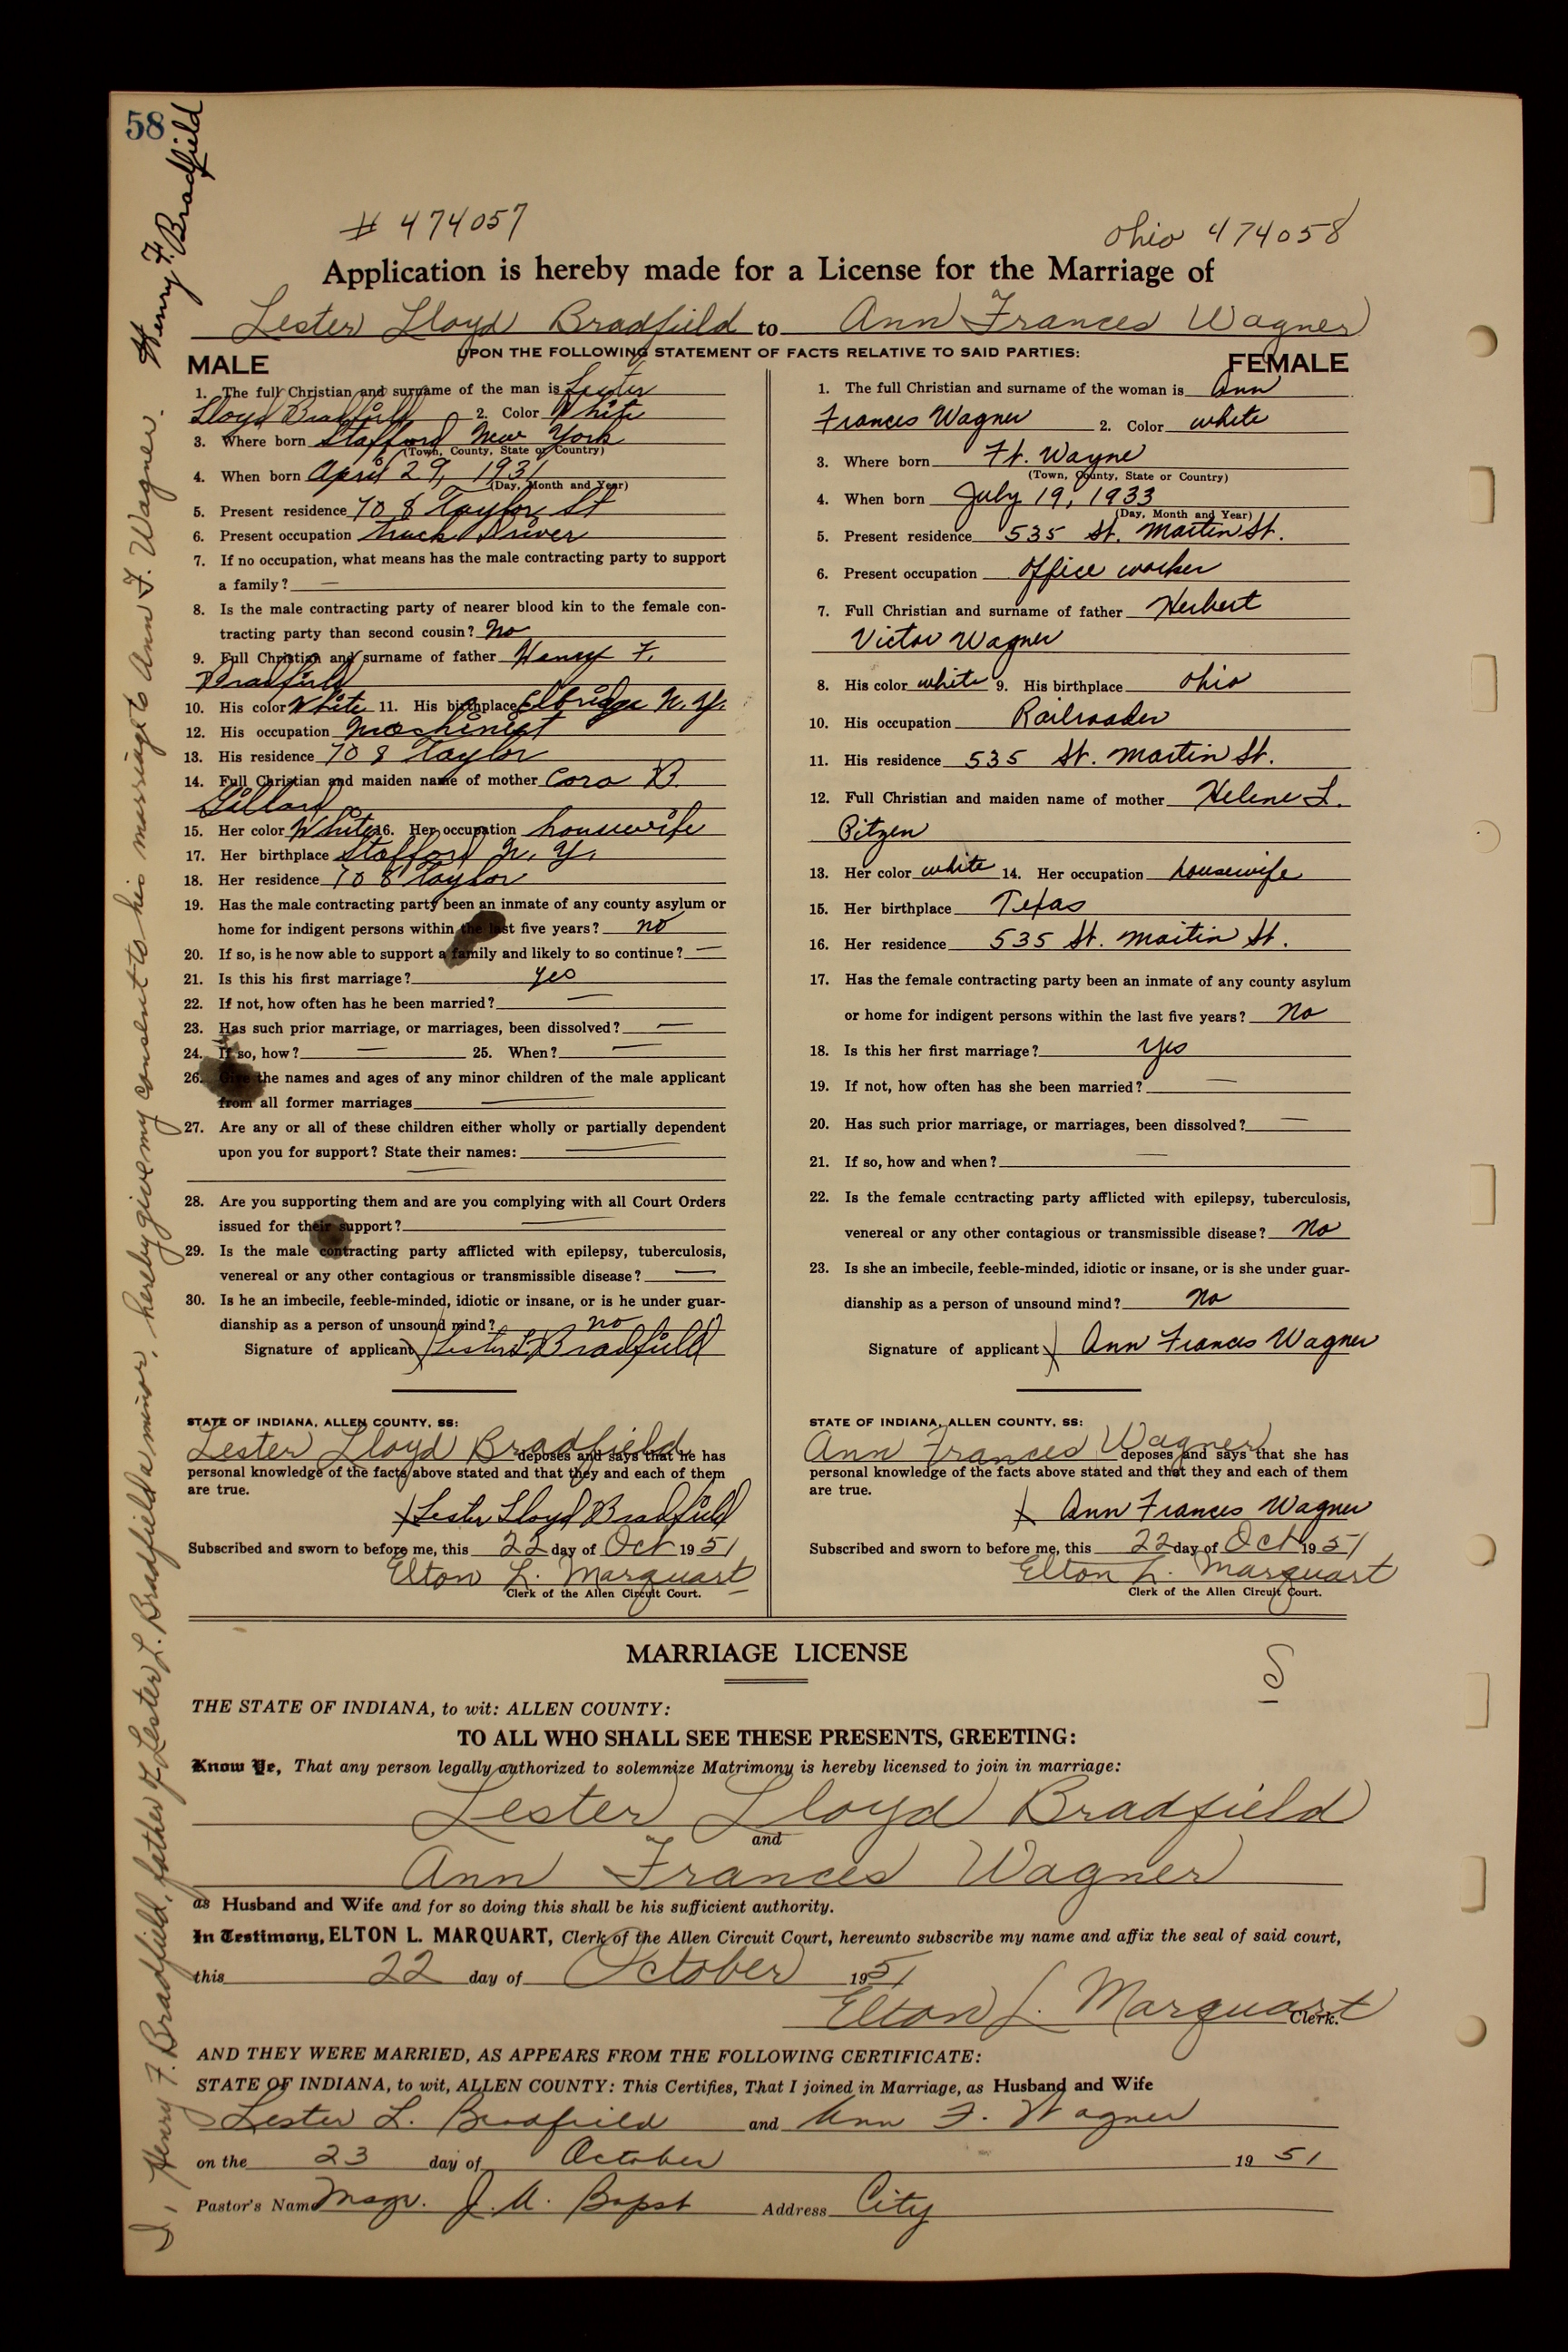 58
# 474057
Ohio 474058
Application is hereby made for a License for the Marriage of
Lester Lloyd Bradfield to Ann Frances Wagner
UPON THE FOLLOWING STATEMENT OF FACTS RELATIVE TO SAID PARTIES:
MALE
1. The full Christian and surname of the man is Lester
Lloyd Bradfield 2. Color White
3. Where born Stafford New York
(Town, County, State or Country)
4. When born April 29, 1931
(Day, Month and Year)
5. Present residence 708 Taylor St
6. Present occupation Truck Driver
7. If no occupation, what means has the male contracting party to support
a family? —
8. Is the male contracting party of nearer blood kin to the female con-
tracting party than second cousin? No
9. Full Christian and surname of father Henry F.
Bradfield
10. His color White 11. His birthplace Elbridge N.Y.
12. His occupation Mashinist
13. His residence 708 Taylor
14. Full Christian and maiden name of mother Cora B.
15. Her color White 16. Her occupation housewife
17. Her birthplace Stafford N.Y.
18. Her residence 708 Taylor
19. Has the male contracting party been an inmate of any county asylum or
home for indigent persons within the last five years? no
20. If so, is he now able to support a family and likely to so continue? —
21. Is this his first marriage? yes
22. If not, how often has he been married? —
23. Has such prior marriage, or marriages, been dissolved? —
24. If so, how? — 25. When? —
26. Give the names and ages of any minor children of the male applicant
from all former marriages —
27. Are any or all of these children either wholly or partially dependent
upon you for support? State their names: —
—
28. Are you supporting them and are you complying with all Court Orders
issued for their support? —
29. Is the male contracting party afflicted with epilepsy, tuberculosis,
venereal or any other contagious or transmissible disease? —
30. Is he an imbecile, feeble-minded, idiotic or insane, or is he under guar-
dianship as a person of unsound mind? no
Signature of applicant Lester L. Bradfield
STATE OF INDIANA, ALLEN COUNTY, SS:
Lester Lloyd Bradfield deposes and says that he has
personal knowledge of the facts above stated and that they and each of them
are true.
x Lester Lloyd Bradfield
Subscribed and sworn to before me, this 22 day of Oct 1951
Elton L. Marquart
Clerk of the Allen Circuit Court.
FEMALE
1. The full Christian and surname of the woman is Ann
Frances Wagner 2. Color white
3. Where born Ft. Wayne
(Town, County, State or Country)
4. When born July 19, 1933
(Day, Month and Year)
5. Present residence 535 St. Martin St.
6. Present occupation Office worker
7. Full Christian and surname of father Herbert
Victor Wagner
8. His color white 9. His birthplace Ohio
10. His occupation Railroader
11. His residence 535 St. Martin St.
12. Full Christian and maiden name of mother Helene L.
Pitzen
13. Her color white 14. Her occupation housewife
15. Her birthplace Texas
16. Her residence 535 St. Martin St.
17. Has the female contracting party been an inmate of any county asylum
or home for indigent persons within the last five years? No
18. Is this her first marriage? Yes
19. If not, how often has she been married? —
20. Has such prior marriage, or marriages, been dissolved? —
21. If so, how and when? —
22. Is the female contracting party afflicted with epilepsy, tuberculosis,
venereal or any other contagious or transmissible disease? No
23. Is she an imbecile, feeble-minded, idiotic or insane, or is she under guar-
dianship as a person of unsound mind? No
Signature of applicant x Ann Frances Wagner
STATE OF INDIANA, ALLEN COUNTY, SS:
Ann Frances Wagner deposes and says that she has
personal knowledge of the facts above stated and that they and each of them
are true.
x Ann Frances Wagner
Subscribed and sworn to before me, this 22 day of Oct 1951
Elton L. Marquart
Clerk of the Allen Circuit Court.
MARRIAGE LICENSE
THE STATE OF INDIANA, to wit: ALLEN COUNTY:
TO ALL WHO SHALL SEE THESE PRESENTS, GREETING:
Know Ye, That any person legally authorized to solemnize Matrimony is hereby licensed to join in marriage:
Lester Lloyd Bradfield
and
Ann Frances Wagner
as Husband and Wife and for so doing this shall be his sufficient authority.
In Testimony, ELTON L. MARQUART, Clerk of the Allen Circuit Court, hereunto subscribe my name and affix the seal of said court,
this 22 day of October 1951
Elton L. Marquart
Clerk.
AND THEY WERE MARRIED, AS APPEARS FROM THE FOLLOWING CERTIFICATE:
STATE OF INDIANA, to wit, ALLEN COUNTY: This Certifies, That I joined in Marriage, as Husband and Wife
Lester L. Bradfield and Ann F. Wagner
on the 23 day of October 1951
Pastor's Name Msgr. J. A. Bapst Address City
I, Henry F. Bradfield, father of Lester L. Bradfield a minor, hereby give my consent to his marriage to Ann F. Wagner.
Henry F. Bradfield